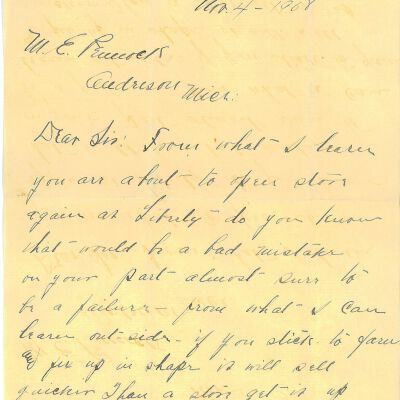 Nov. 4 - 1908
M. E. Pennock
Andreson
Mich:
Dear Sir: From what I learn
you are about to open store
again at Liberty - do you know
that would be a bad mistake
on your part - almost sure to
be a failure - from what I can
learn out-side - if you stick to farm
and fix up in shape it will sell
quicker than a store get it up